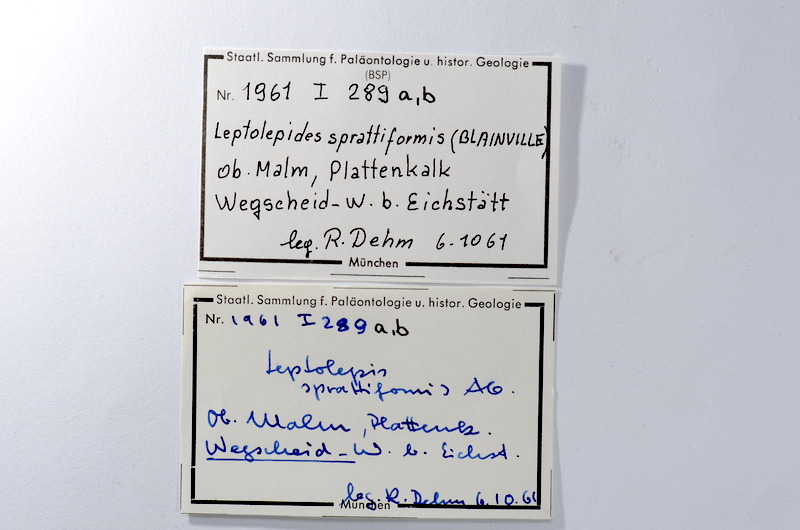 Staatl. Sammlung f. Paläontologie u. histor. Geologie
(BSP)
Nr. 1961 I 289 a,b
Leptolepides sprattiformis (BLAINVILLE)
Ob. Malm, Plattenkalk
Wegscheid-W. b. Eichstätt
leg. R. Dehm 6-1061
München
Staatl. Sammlung f. Paläontologie u. histor. Geologie
Nr. 1961 I 289 a,b
Leptolepis
sprattiformis AG.
Ob. Malm, Plattenk.
Wegscheid-W. b. Eichst.
leg. R. Dehm 6.10.61
München